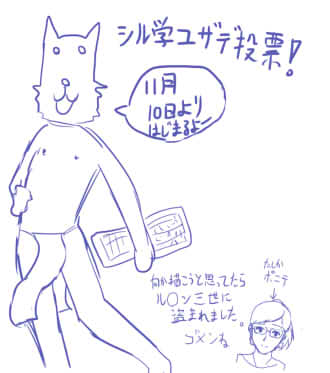 シル学ユザデ投票!
11月
10日より
はじまるよー
何か描こうと思ってたら
ル〇ン三世に
盗まれました。
ゴメンね
たしか
ポニテ